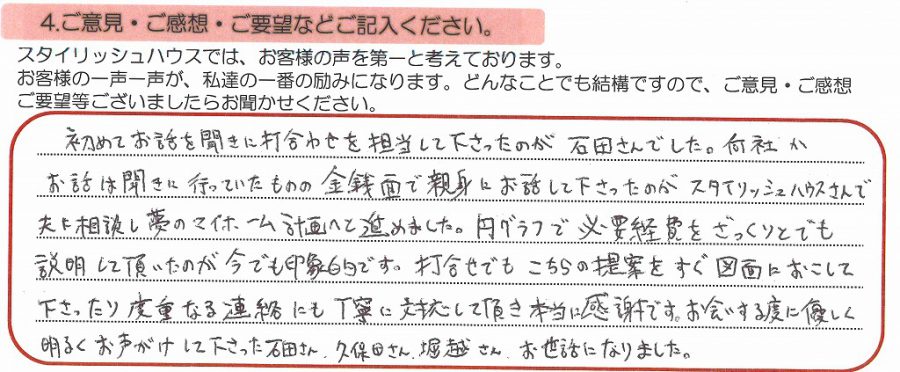 4.ご意見・ご感想・ご要望などご記入ください。
スタイリッシュハウスでは、お客様の声を第一と考えております。
お客様の一声一声が、私達の一番の励みになります。どんなことでも結構ですので、ご意見・ご感想
ご要望等ございましたらお聞かせください。
初めてお話を聞きに打合わせを担当して下さったのが 石田さんでした。何社か
お話は聞きに行っていたものの 金銭面で親身にお話して下さったのが スタイリッシュハウスさんで
夫と相談し夢のマイホーム計画へと進めました。円グラフで必要経費をざっくりとでも
説明して頂いたのが今でも印象的です。打合せでもこちらの提案をすぐ図面におこして
下さったり度重なる連絡にも丁寧に対応して頂き本当に感謝です。お会いする度に優しく
明るくお声がけして下さった石田さん、久保田さん、堀越さん、お世話になりました。